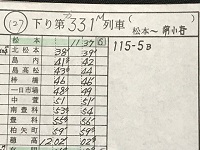 (27) 下り第331M列車 (松本～南小谷
松本 11 37 (6)
北松本 38 39
島内 41 42
島高松 43 44
梓橋 46 46
一日市場 48 49
中萱 51 51
南豊科 53 54
豊科 56 56
柏矢町 59 59
穂高 12 02 02
115-5B